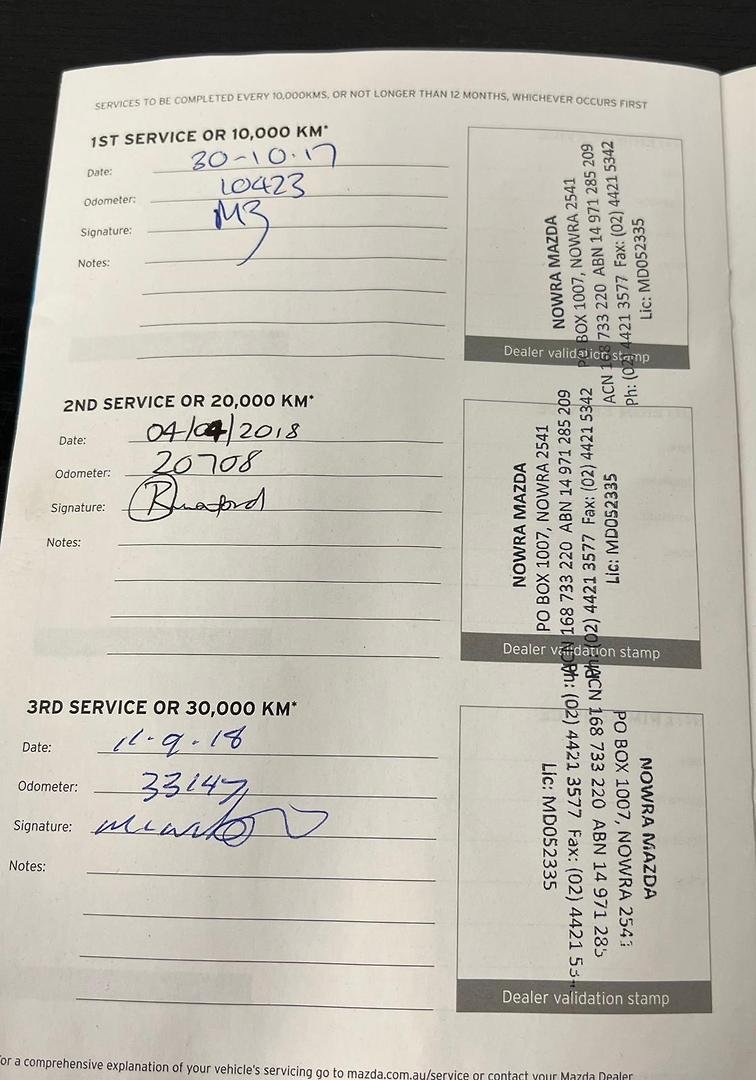 SERVICES TO BE COMPLETED EVERY 10,000KMS, OR NOT LONGER THAN 12 MONTHS, WHICHEVER OCCURS FIRST
1ST SERVICE OR 10,000 KM*
Date: 30-10-17
Odometer: 10423
Signature:
Notes:
NOWRA MAZDA
PO BOX 1007, NOWRA 2541
ACN 168 733 220 ABN 14 971 285 209
Ph: (02) 4421 3577 Fax: (02) 4421 5342
Lic: MD052335
Dealer validation stamp
2ND SERVICE OR 20,000 KM*
Date: 04/04/2018
Odometer: 20708
Signature:
Notes:
NOWRA MAZDA
PO BOX 1007, NOWRA 2541
ACN 168 733 220 ABN 14 971 285 209
Ph: (02) 4421 3577 Fax: (02) 4421 5342
Lic: MD052335
Dealer validation stamp
3RD SERVICE OR 30,000 KM*
Date: 11-9-18
Odometer: 33147
Signature:
Notes:
NOWRA MAZDA
PO BOX 1007, NOWRA 2541
ACN 168 733 220 ABN 14 971 285
Ph: (02) 4421 3577 Fax: (02) 4421 53
Lic: MD052335
Dealer validation stamp
or a comprehensive explanation of your vehicle's servicing go to mazda.com.au/service or contact your Mazda Dealer